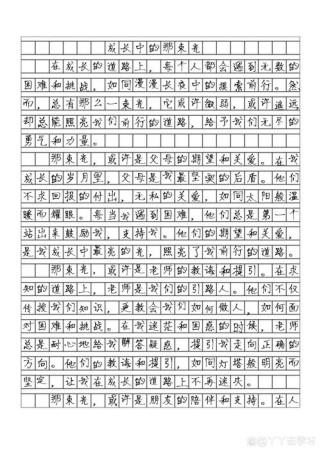 成长中的那束光
在成长的道路上，每个人都会遇到无数的
困难和挑战，如同漫漫长夜中的摸索前行。然
而，总有那么一束光，它或许微弱，或许遥远
却总能照亮我们前行的道路，给予我们无尽的
勇气和力量。
那束光，或许是父母的期望和关爱。在我
成长的岁月里，父母是我最坚实的后盾。他们
不求回报的付出，无私的关爱，如同太阳般温
暖而耀眼。每当我遇到困难，他们总是第一个
站出来鼓励我，支持我。他们的期望和关爱，
是我成长中最亮的光，照亮了我前行的道路。
那束光，或许是老师的教诲和提引。在求
知的道路上，老师是我们的引路人。他们不仅
传授我们知识，更教会我们如何做人，如何面
对困难和挑战。在我迷茫和困惑的时候，老师
总是耐心地给我解答疑惑，指引我走向正确的
方向。他们的教诲和提引，如同灯塔般明亮而
坚定，让我在成长的道路上不再迷失。
那束光，或许是朋友的陪伴和支持。在人